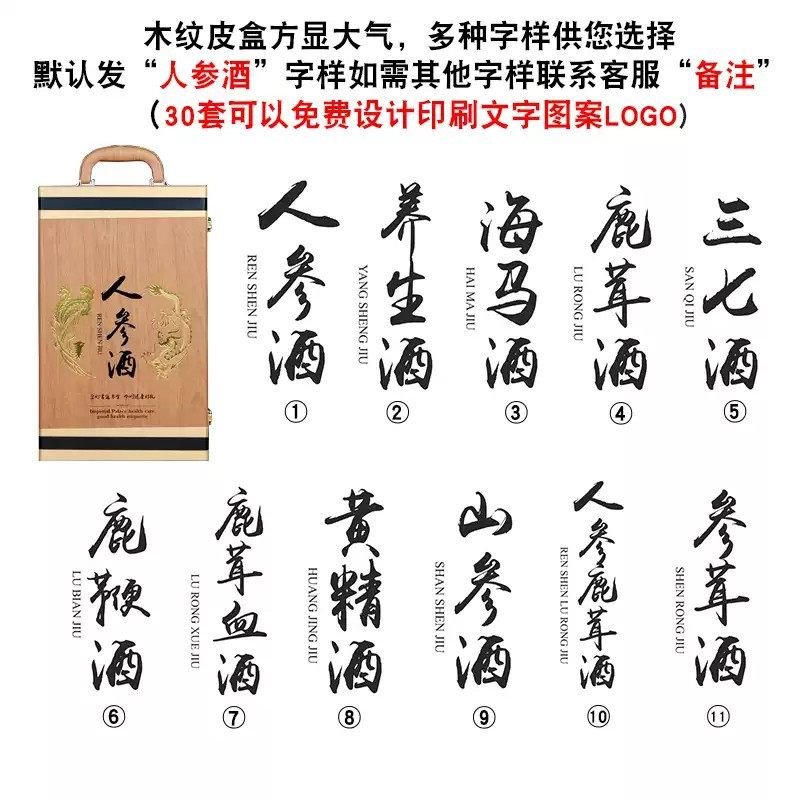 木纹皮盒方显大气，多种字样供您选择
默认发“人参酒”字样如需其他字样联系客服“备注”
（30套可以免费设计印刷文字图案LOGO)
人参酒
REN SHEN JIU
Imperial Palace health care
good health etiquette
人参酒
REN SHEN JIU
①
养生酒
YANG SHENG JIU
②
海马酒
HAI MA JIU
③
鹿茸酒
LU RONG JIU
④
三七酒
SAN QI JIU
⑤
鹿鞭酒
LU BIAN JIU
⑥
鹿茸血酒
LU RONG XUE JIU
⑦
黄精酒
HUANG JING JIU
⑧
山参酒
SHAN SHEN JIU
⑨
人参鹿茸酒
REN SHEN LU RONG JIU
⑩
参茸酒
SHEN RONG JIU
⑪